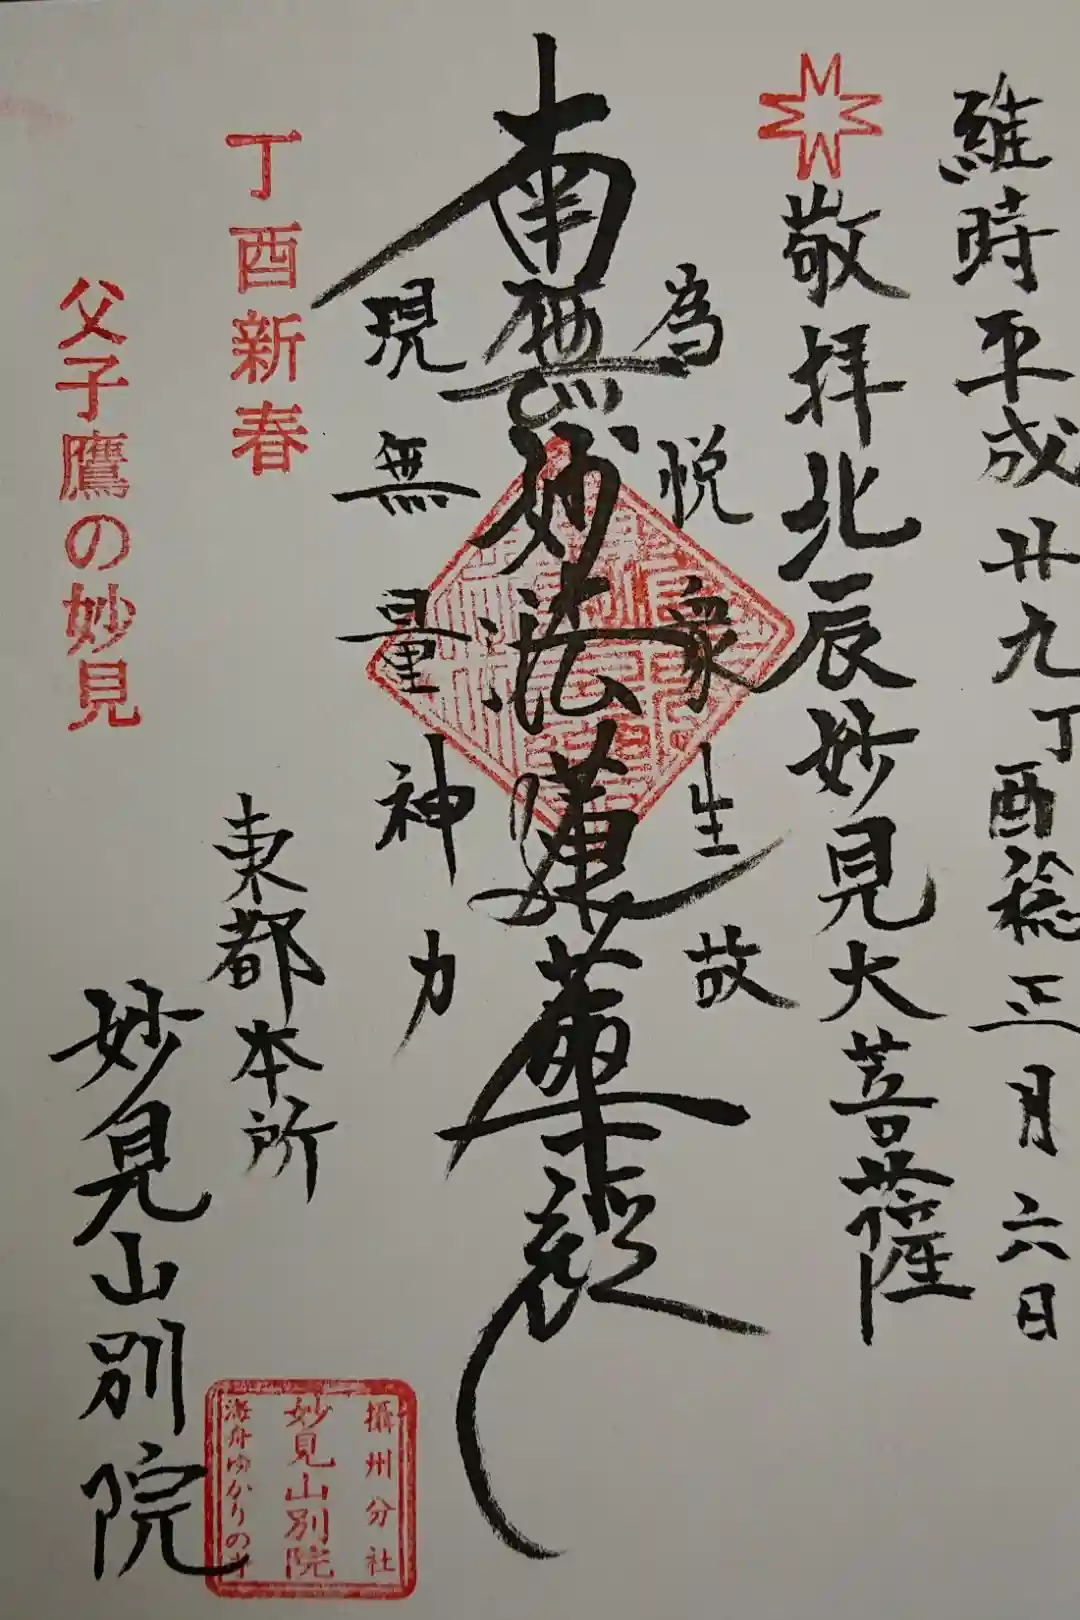 維時平成廿九丁酉稔正月六日
敬拝北辰妙見大菩薩
為悦衆生故
南無妙法蓮華経
現無量神力
丁酉新春
東都本所
父子鷹の妙見
妙見山別院
攝州分社
妙見山別院
海舟ゆかりの寺